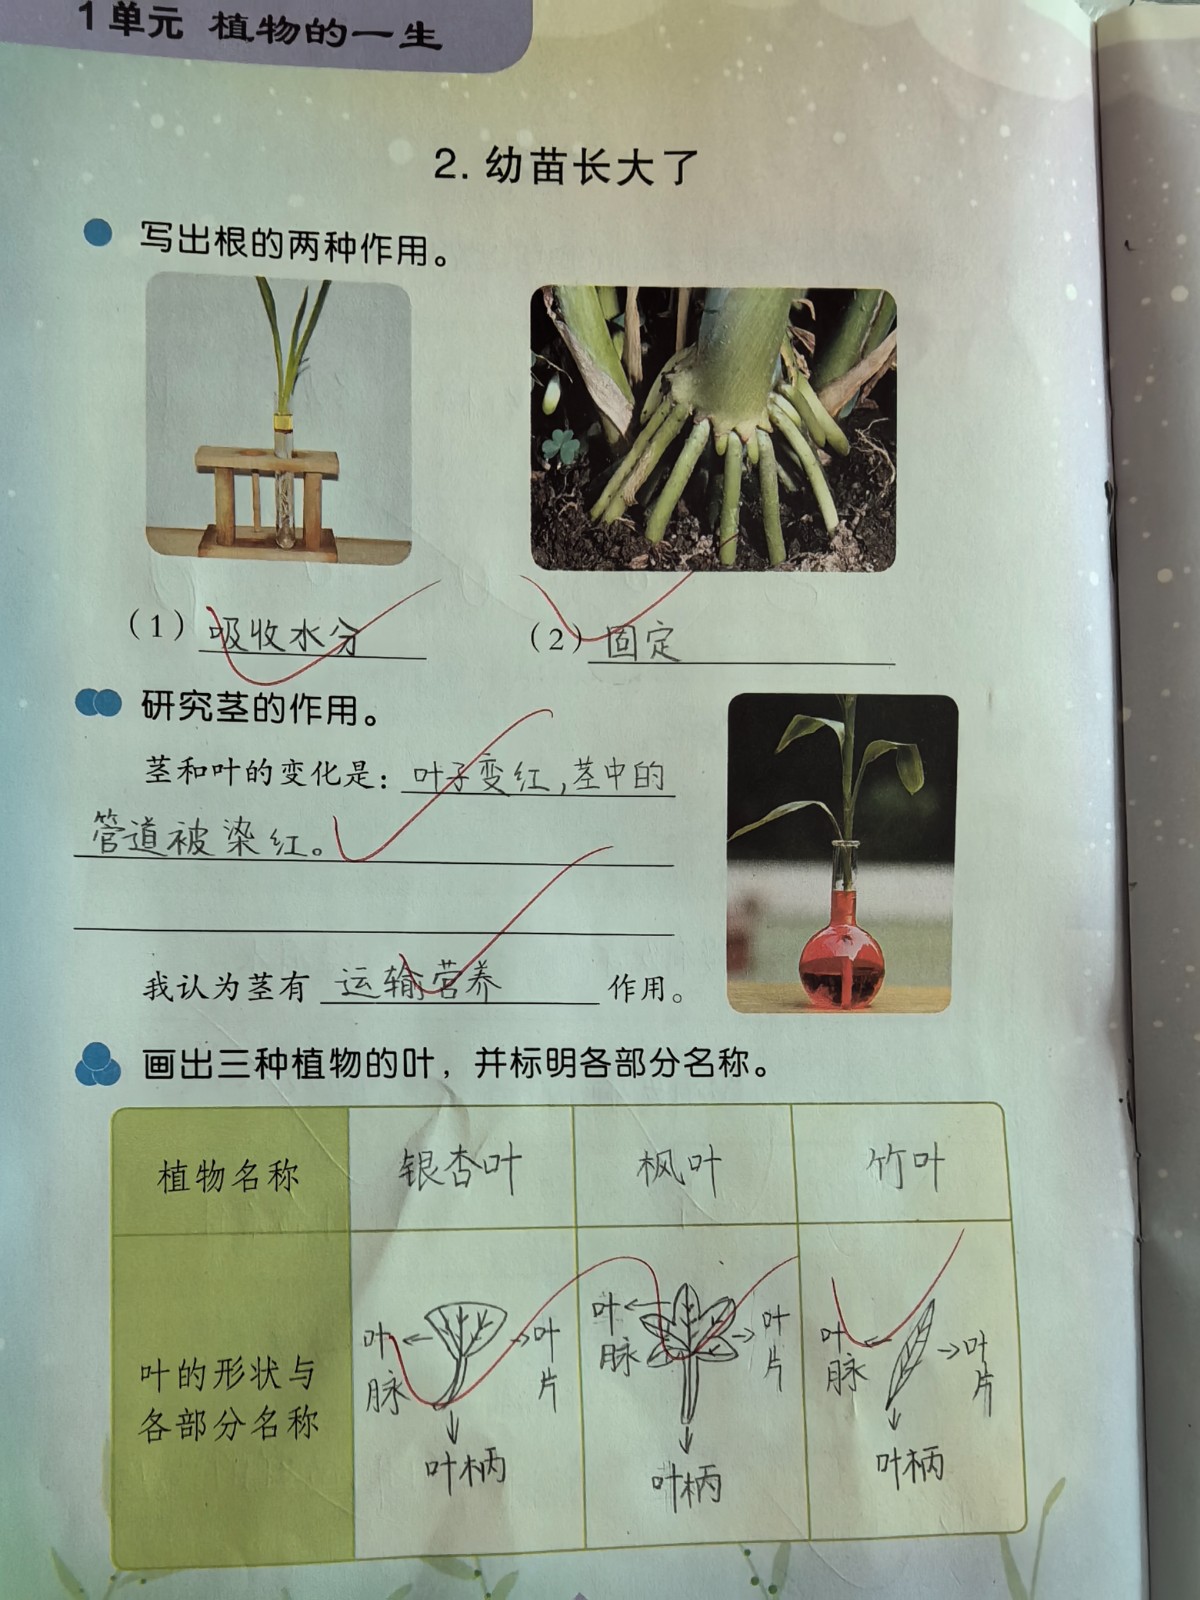 1单元 植物的一生
2. 幼苗长大了
写出根的两种作用。
（1）吸收水分 （2）固定
研究茎的作用。
茎和叶的变化是：叶子变红，茎中的
管道被染红。
我认为茎有 运输营养 作用。
画出三种植物的叶，并标明各部分名称。
植物名称 银杏叶 枫叶 竹叶
叶的形状与
各部分名称
叶脉 叶片 叶柄
叶脉 叶片 叶柄
叶脉 叶片 叶柄